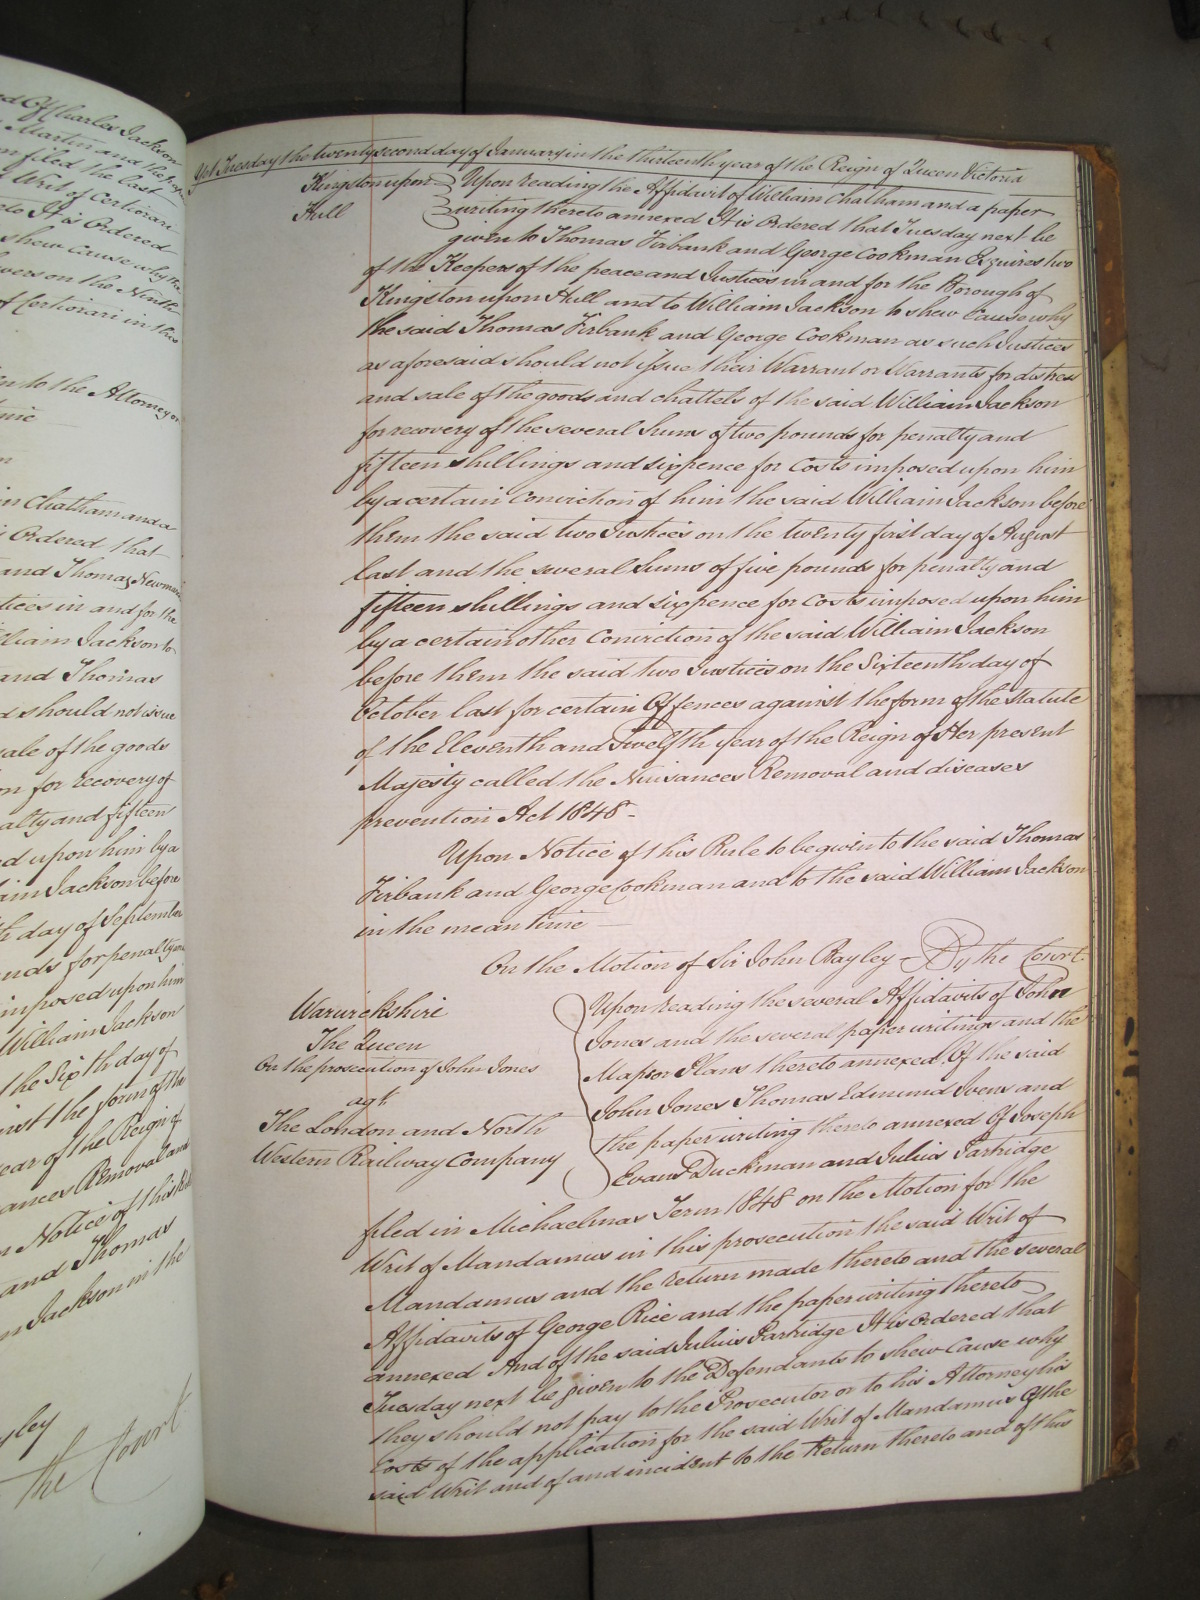 ed Of Charles Jackson
Martin and the
n filed the last
f Writ of Certiorari
eto It is Ordered
shew Cause why the
wers on the Ninth
of Certiorari in this
en to the Attorney or
time
m Chatham and a
s Ordered that
and Thomas Newman
tices in and for the
lliam Jackson to
and Thomas
d should not issue
sale of the goods
on for recovery of
alty and fifteen
ed upon him by a
iam Jackson before
th day of September
unds for penalty and
imposed upon him
William Jackson
the Sixth day of
inst the form of the
year of the Reign of
ances Removal and
n Notice of this Rule
and Thomas
m Jackson in the
yley
the Court
Yet Tuesday the twenty second day of January in the thirteenth year of the Reign of Queen Victoria
Kingston upon
Hull
Upon reading the Affidavit of William Chatham and a paper
writing thereto annexed It is Ordered that Tuesday next be
given to Thomas Firbank and George Cookman Esquires two
of the Keepers of the peace and Justices in and for the Borough of
Kingston upon Hull and to William Jackson to shew Cause why
the said Thomas Firbank and George Cookman as such Justices
as aforesaid should not issue their Warrant or Warrants for distress
and sale of the goods and chattels of the said William Jackson
for recovery of the several Sums of two pounds for penalty and
fifteen shillings and sixpence for Costs imposed upon him
by a certain Conviction of him the said William Jackson before
them the said two Justices on the twenty first day of August
last and the several Sums of five pounds for penalty and
fifteen shillings and sixpence for Costs imposed upon him
by a certain other Conviction of the said William Jackson
before them the said two Justices on the Sixteenth day of
October last for certain Offences against the form of the Statute
of the Eleventh and Twelfth year of the Reign of Her present
Majesty called the Nuisances Removal and diseases
prevention Act 1848 -
Upon Notice of this Rule to be given to the said Thomas
Firbank and George Cookman and to the said William Jackson
in the mean time
On the Motion of Sir John Bayley - By the Court.
Warwickshire
The Queen
On the prosecution of John Jones
agt.
The London and North
Western Railway Company
Upon reading the several Affidavits of John
Jones and the several paper writings and the
Map or Plans thereto annexed Of the said
John Jones Thomas Edmund Ivens and
the paper writing thereto annexed Of Joseph
Evans Duckman and Julius Partridge
filed in Michaelmas Term 1848 on the Motion for the
Writ of Mandamus in this prosecution the said Writ of
Mandamus and the return made thereto and the several
Affidavits of George Rice and the paper writing thereto
annexed And of the said Julius Partridge It is Ordered that
Tuesday next be given to the Defendants to shew Cause why
they should not pay to the Prosecutor or to his Attorney his
Costs of the application for the said Writ of Mandamus Of the
said Writ and of and incident to the Return thereto and of this